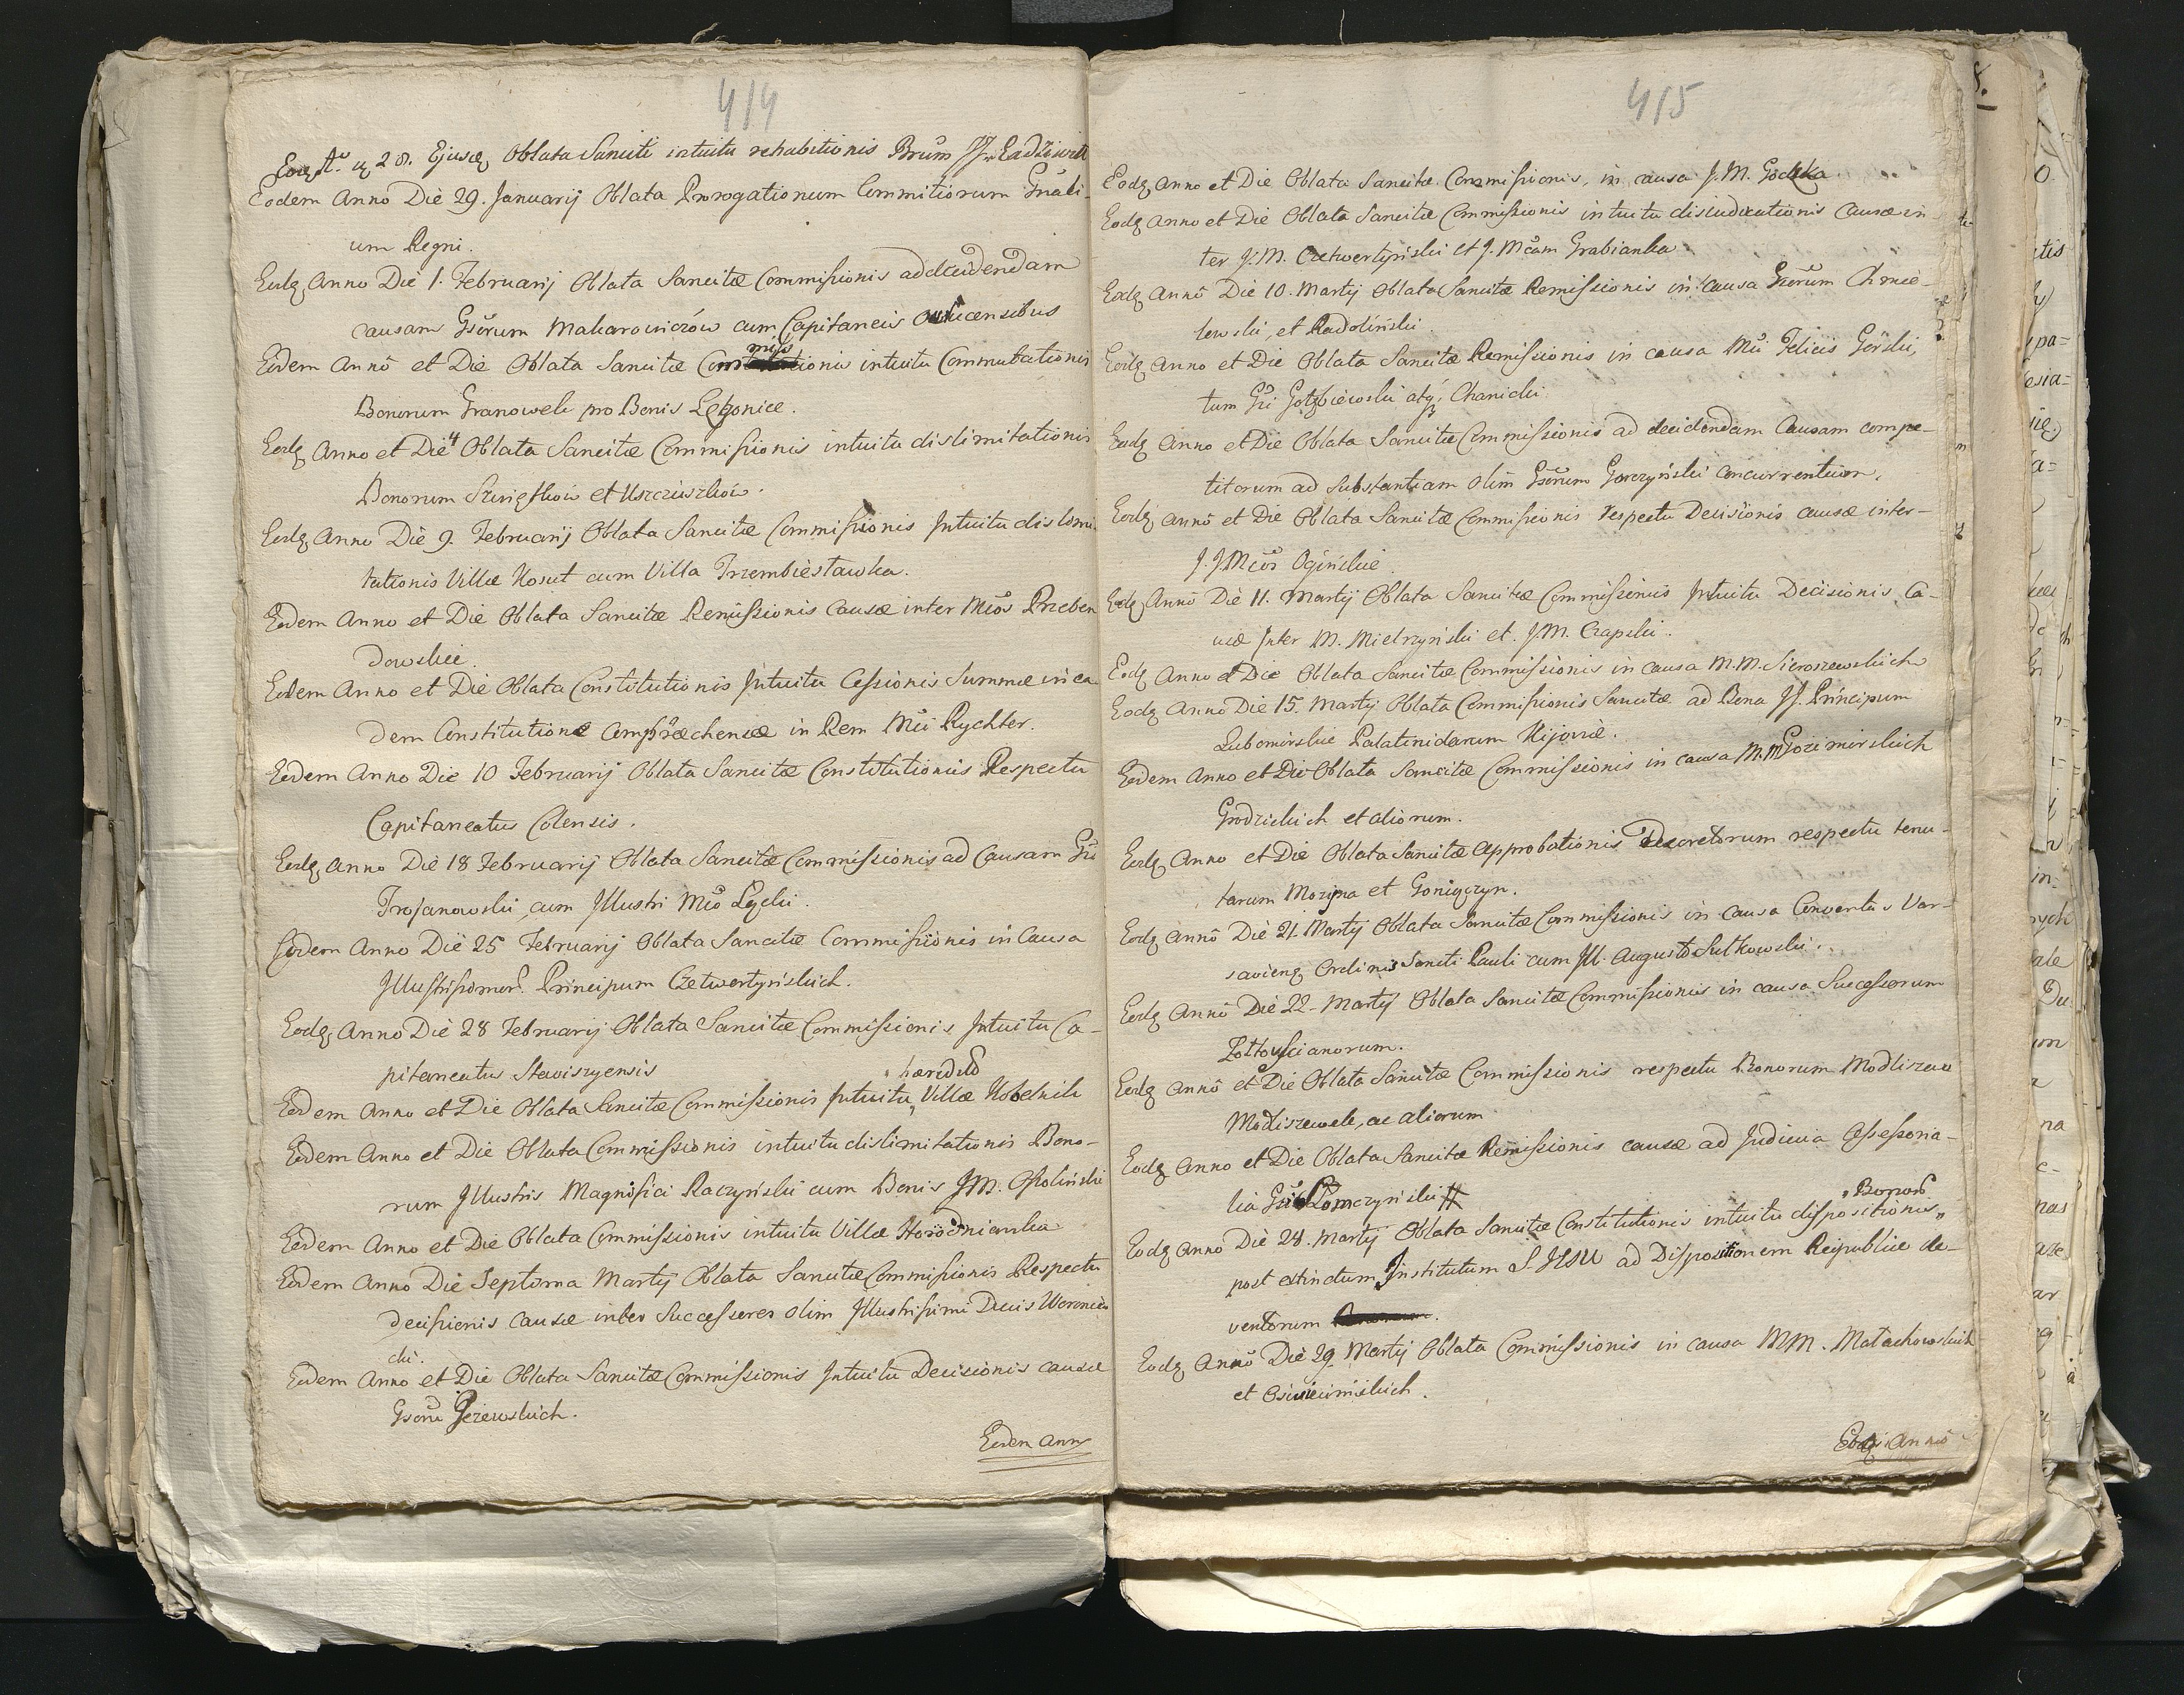 414
Eodꝫ Aº. ꝫ 28. Ejusdꝫ Oblata Sanciti intuitu rehabitionis Brum JJ. Radziwiłł
Eodem Anno Die 29. Januarij Oblata Prorogationum Commitiorum Gnãli-
um Regni.
Eodꝫ Anno Die 1. Februarij Oblata Sancitæ Commissionis ad decidendam
causam Gsõrum Makarowiczów cum Capitaneis Owrucensibus
Eodem Anno et Die Oblata Sancitæ Commissionis intuitu Commutationis
Bonorum Granowek pro Bonis Lętzonice.
Eodꝫ Anno et Die 4 Oblata Sancitæ Commissionis intuitu dislimitationis
Bonorum et Uszczuszków.
Eodꝫ Anno Die 9. Februarij Oblata Sancitæ Commissionis Intuitu dislimi-
tationis Villæ Kosut cum Villa Trzembiesławka.
Eodem Anno et Die Oblata Sancitæ Remissionis Causæ inter Mcõs Przeben
dowskie.
Eodem Anno et Die Oblata Constitutionis Intuitu Cessionis Summæ in ea
dem Constitutione Comphræchensæ in Rem Mci Rychter.
Eodem Anno Die 10 Februarij Oblata Sancitæ Constitutionis Respectu
Capitaneatus Colensis.
Eodꝫ Anno Die 18 Februarij Oblata Sancitæ Commissionis ad Causam Gsi
Trojanowski cum Illustri Mcõ Łęcki.
Eodem Anno Die 25 Februarij Oblata Sancitæ Commissionis in Causa
Illustrissimor. Principum Czetwertyńskich.
Eodꝫ Anno Die 28 Februarij Oblata Sancitæ Commissionis Intuitu Ca-
pitaneatus Stawiszyensis
hæredit
Eodem Anno et Die Oblata Sancitæ Commissionis Intuitu „ Villæ Kobelnik
Eodem Anno et Die Oblata Commissionis intuitu dislimitationis Bono-
rum Illustris Magnifici Raczyński cum Bonis JM. Ossoliński
Eodem Anno et Die Oblata Commissionis intuitu Villæ Horodnianka
Eodem Anno Die Septima Martij Oblata Sancitæ Commissionis Respectu
decisionis Causæ inter Successores olim Illustrissimi Ducis Woroniec
cki.
Eodem Anno et Die Oblata Sancitæ Commissionis Intuitu Decisionis causæ
Gsoru Jeżewskich.
Eodem Anno
415
Eodꝫ Anno et Die Oblata Sancitæ Commissionis, in causa J.M. Godzka.
Eodꝫ Anno et Die Oblata Sancitæ Commissionis intuitu disiudicationis Causæ in-
ter J.M. Czetwertyński et J. Mcam Grabianka
Eodꝫ Anno Die 10. Martij Oblata Sancitæ Remissionis in causa Gsorum Chmie-
lewski, et Radoliński.
Eodꝫ Anno et Die Oblata Sancitæ Remissionis in causa Mci Felicis Górski,
tum Gsi Gołębiewski atqꝫ Chanicki.
Eodꝫ Anno et Die Oblata Sancitæ Commissionis ad decidendam Causam compe-
titorum ad Substantiam olim Gsorum Gorczyński concurrentium.
Eodꝫ Anno et Die Oblata Sancitæ Commissionis respectu Decisionis causæ inter-
J. JMcos Ogińskie.
Eodꝫ Anno Die 11. Martij Oblata Sancitæ Commissionis Intuitu Decisionis Ca-
usæ Inter M. Mielzyński et. J.M. Czapski.
Eodꝫ Anno et Die Oblata Sancitæ Commissionis in causa M.M. Sieroszewskich
Eodꝫ Anno Die 15. Martij Oblata Commissionis Sancitæ ad Bona JJ. Principum
Lubomirskie Palatinidarum Kijoviæ.
Eodem Anno et Die Oblata Sancitæ Commissionis in causa M.M. Pozimirskich
Grodzickich et aliorum.
Eodꝫ Anno et Die Oblata Sancitæ approbationis Decretorum respectu tenu-
tarum Mozyna et Goniączyn.
Eodꝫ Anno Die 21. Martij Oblata Sancitæ Commissionis in causa Conventus Var-
savienꝫ Ordinis Sancti Pauli cum Ill. Augusto Sułkowski.
Eodꝫ Anno Die 22. Martij Oblata Sancitæ Commissionis in causa Successorum
Zołtowscianorum.
Eodꝫ Anno et Die Oblata Sancitæ Commissionis respectu Bonorum Modliszewo
Modliszewek, ac aliorum
Eodꝫ Anno et Die Oblata Sancitæ Remissionis causæ ad Judicia Assessoria-
lia Gsi Pomczyński #
Bonorꝫ
Eodꝫ Anno Die 28. Martij Oblata Sancitæ Constitutionis intuitu dispositionis „
post extinctum Institutum S. JESU ad Dispositionem Reipublicæ de-
ventorum
Eodꝫ Anno Die 29. Martij Oblata Commissionis in causa MM. Małachowskich
et Osiecimskich.
Eodꝫ Anno